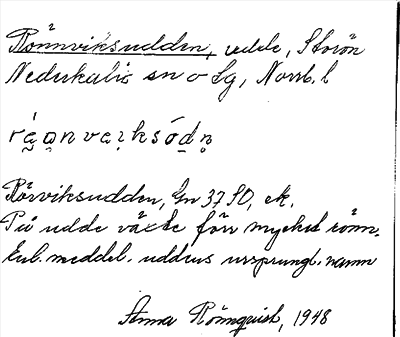 Rönnviksudden, udde, Storön
Nederkalix sn o Lg, Norrb. l
Rörviksudden, Gn 37 SO, ek.
På udde växte förr mycket rönn.
Enl. meddel. uddens ursprungl. namn
Anna Rönnquist, 1948